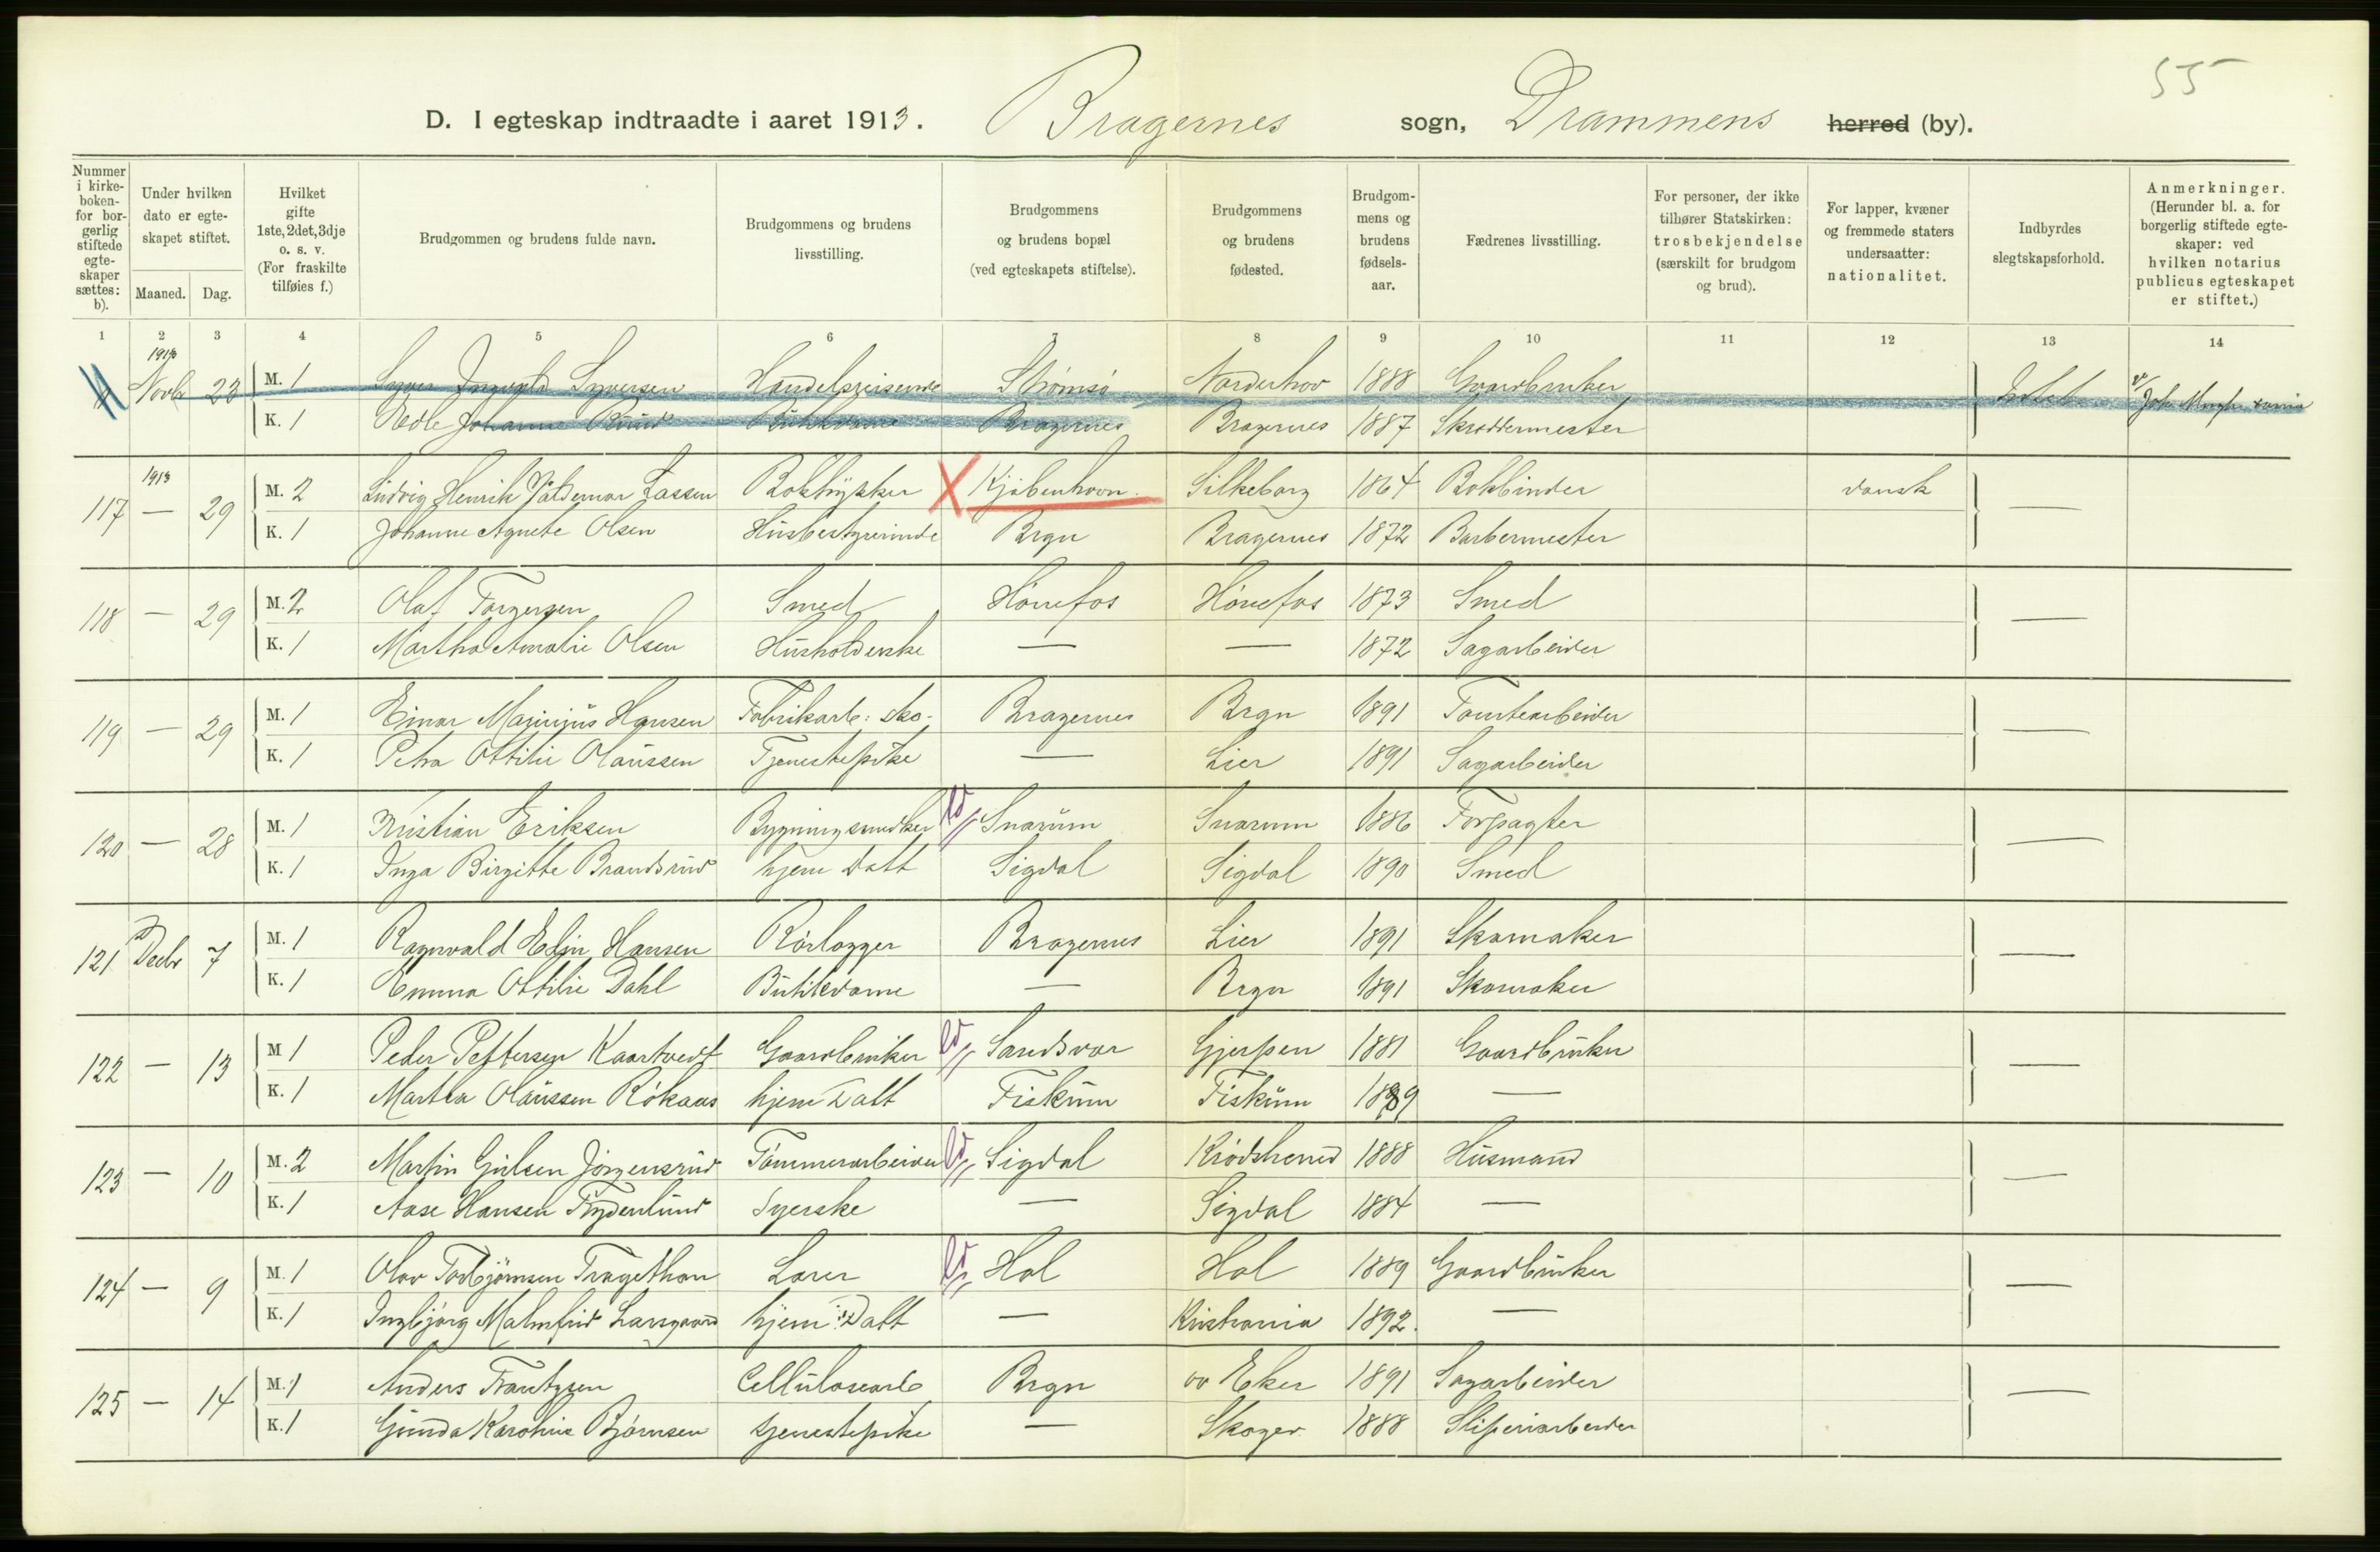 55
D. I egteskap indtraadte i aaret 1913. Bragernes sogn, Drammens herred (by).
Nummer i kirke-boken- for bor-gerlig stiftede egte-skaper sættes: b).
Under hvilken dato er egte-skapet stiftet.
Maaned. Dag.
Hvilket gifte 1ste, 2det, 3dje o. s. v. (For fraskilte tilføies f.)
Brudgommen og brudens fulde navn.
Brudgommens og brudens livsstilling.
Brudgommens og brudens bopæl (ved egteskapets stiftelse).
Brudgommens og brudens fødested.
Brudgom-mens og brudens fødsels-aar.
Fædrenes livsstilling.
For personer, der ikke tilhører Statskirken: trosbekjendelse (særskilt for brudgom og brud).
For lapper, kvæner og fremmede staters undersaatter: nationalitet.
Indbyrdes slegtskapsforhold.
Anmerkninger. (Herunder bl. a. for borgerlig stiftede egte-skaper: ved hvilken notarius publicus egteskapet er stiftet.)
1 2 3 4 5 6 7 8 9 10 11 12 13 14
Novb 23 M. 1 Syversen Handelsreisende Strømsø Norderhov 1888 Gaardbruker
K. 1 Johanne Bragernes Bragernes 1887 Skreddermester
1913
117 — 29 M. 2 Ludvig Henrik Valdemar Lassen Boktrykker X Kjøbenhavn. Silkeborg 1864 Bokbinder dansk —
K. 1 Johanne Agnete Olsen Husbestyrerinde Brgn Bragernes 1872 Barbermester
118 — 29 M. 2 Olaf Torgersen Smed Hønefos Hønefos 1873 Smed —
K. 1 Martha Amalie Olsen Husholderske — — 1872 Sagarbeider
119 — 29 M. 1 Einar Hansen Fabrikarb: sko- Bragernes Brgn 1891 Tomtearbeider —
K. 1 Petra Ottilie Olaussen Tjenestepike — Lier 1891 Sagarbeider
120 — 28 M. 1 Kristian Eriksen Bygningssnedker Snarum Snarum 1886 Forpagter —
K. 1 Inga Birgitte Brandsrud hjem datt Sigdal Sigdal 1890 Smed
121 Decbr 7 M. 1 Ragnvald Hansen Rørlægger Bragernes Lier 1891 Skomaker —
K. 1 Emma Ottilie Dahl Butikdame — Brgn 1891 Skomaker
122 — 13 M 1 Peder Pettersen Kaartvedt Gaardbruker Sandsvær Gjerpen 1881 Gaardbruker —
K. 1 Martha Olaussen Røkaas hjem datt Fiskum Fiskum 1889 —
123 — 10 M. 2 Martin Gulsen Jørgensrud Tømmerarbeider Sigdal Krødsherred 1888 Husmand —
K. 1 Aase Hansen Frydenlund Syerske — Sigdal 1884 —
124 — 9 M. 1 Olav Torbjørnsen Tragethon Lærer Hol Hol 1889 Gaardbruker —
K. 1 Ingbjørg Malmfrid Larsgaard hjem: Datt — Kristiania 1892. —
125 — 14 M. 1 Anders Frantzsen Cellulosearb Brgn øv Eker 1891 Sagarbeider —
K. 1 Gunda Karoline Bjørnsen tjenestepike — Skoger 1888 Sliperiarbeider